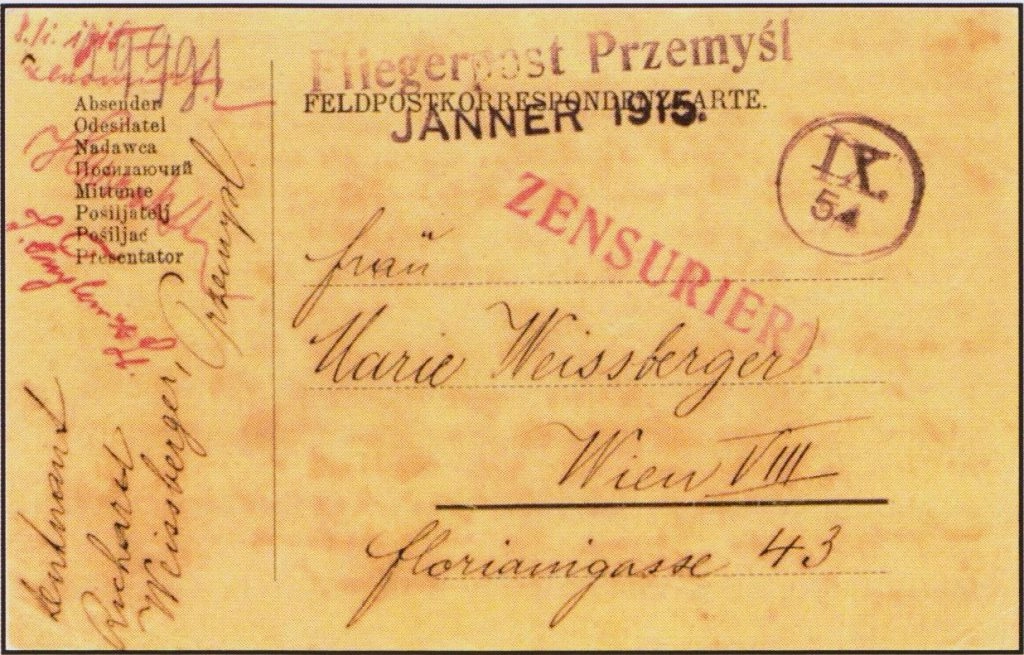 Fliegerpost Przemyśl
FELDPOSTKORRESPONDENZKARTE.
JÄNNER 1915.
IX.
54
ZENSURIERT.
8./i. 1915
Absender
Odesílatel
Nadawca
Посилаючий
Mittente
Pošiljatelj
Pošiljač
Presentator
Leutnant
Richard
Weissberger, Przemysl
Frau
Marie Weissberger
Wien VIII
Florianigasse 43